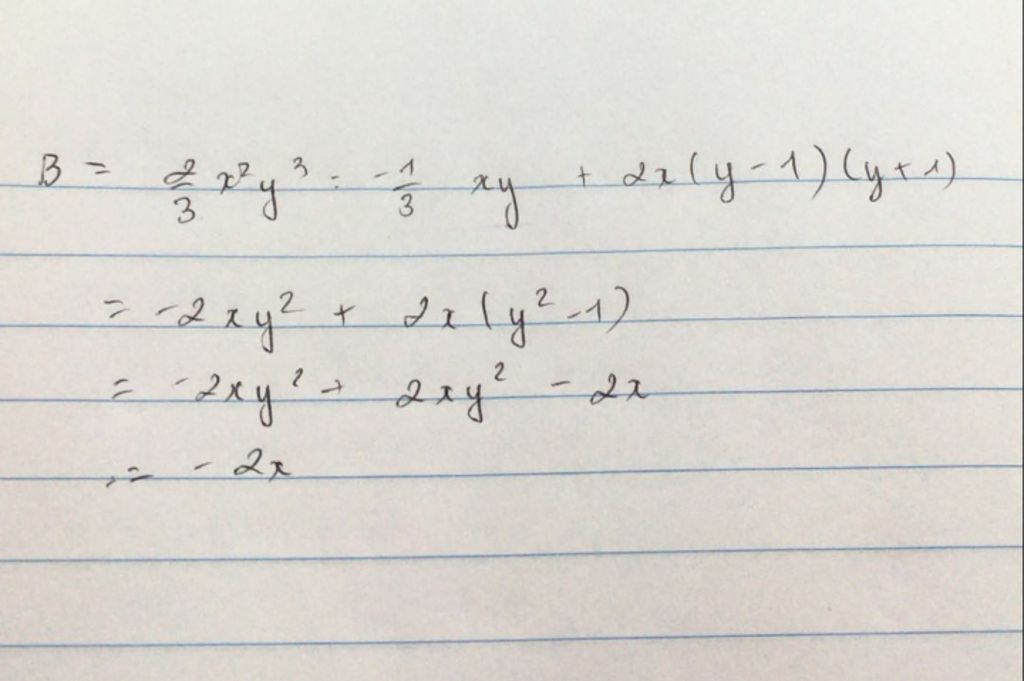 B = 2/3 x²y³ : -1/3 xy + 2x(y-1)(y+1)
= -2xy² + 2x(y²-1)
= -2xy² + 2xy² - 2x
= -2x